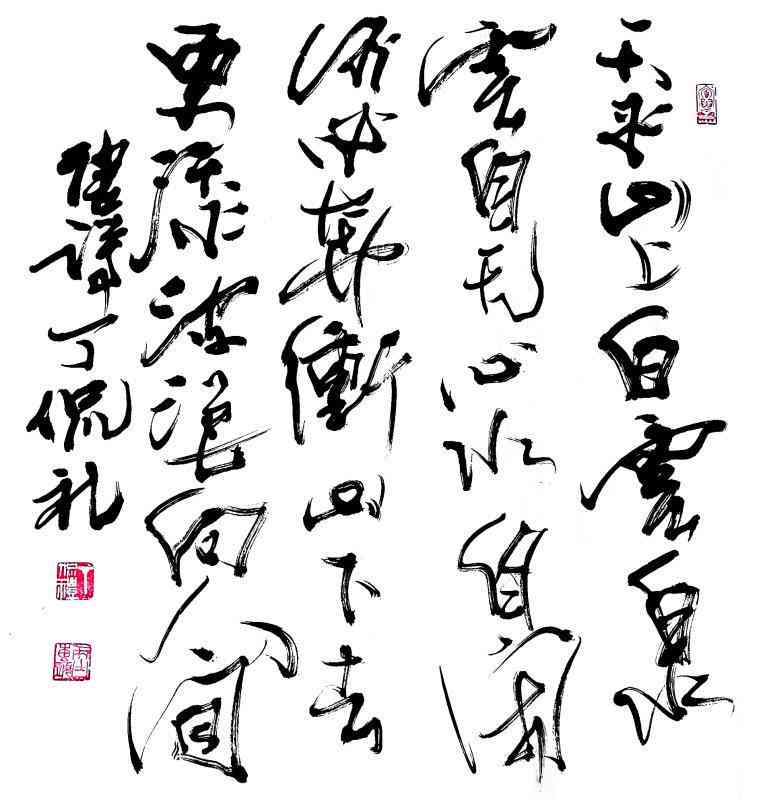 天平山上白雲泉
雲自无心水自閑
何必奔衝山下去
更添波浪向人間
丁侃礼
丁侃禮